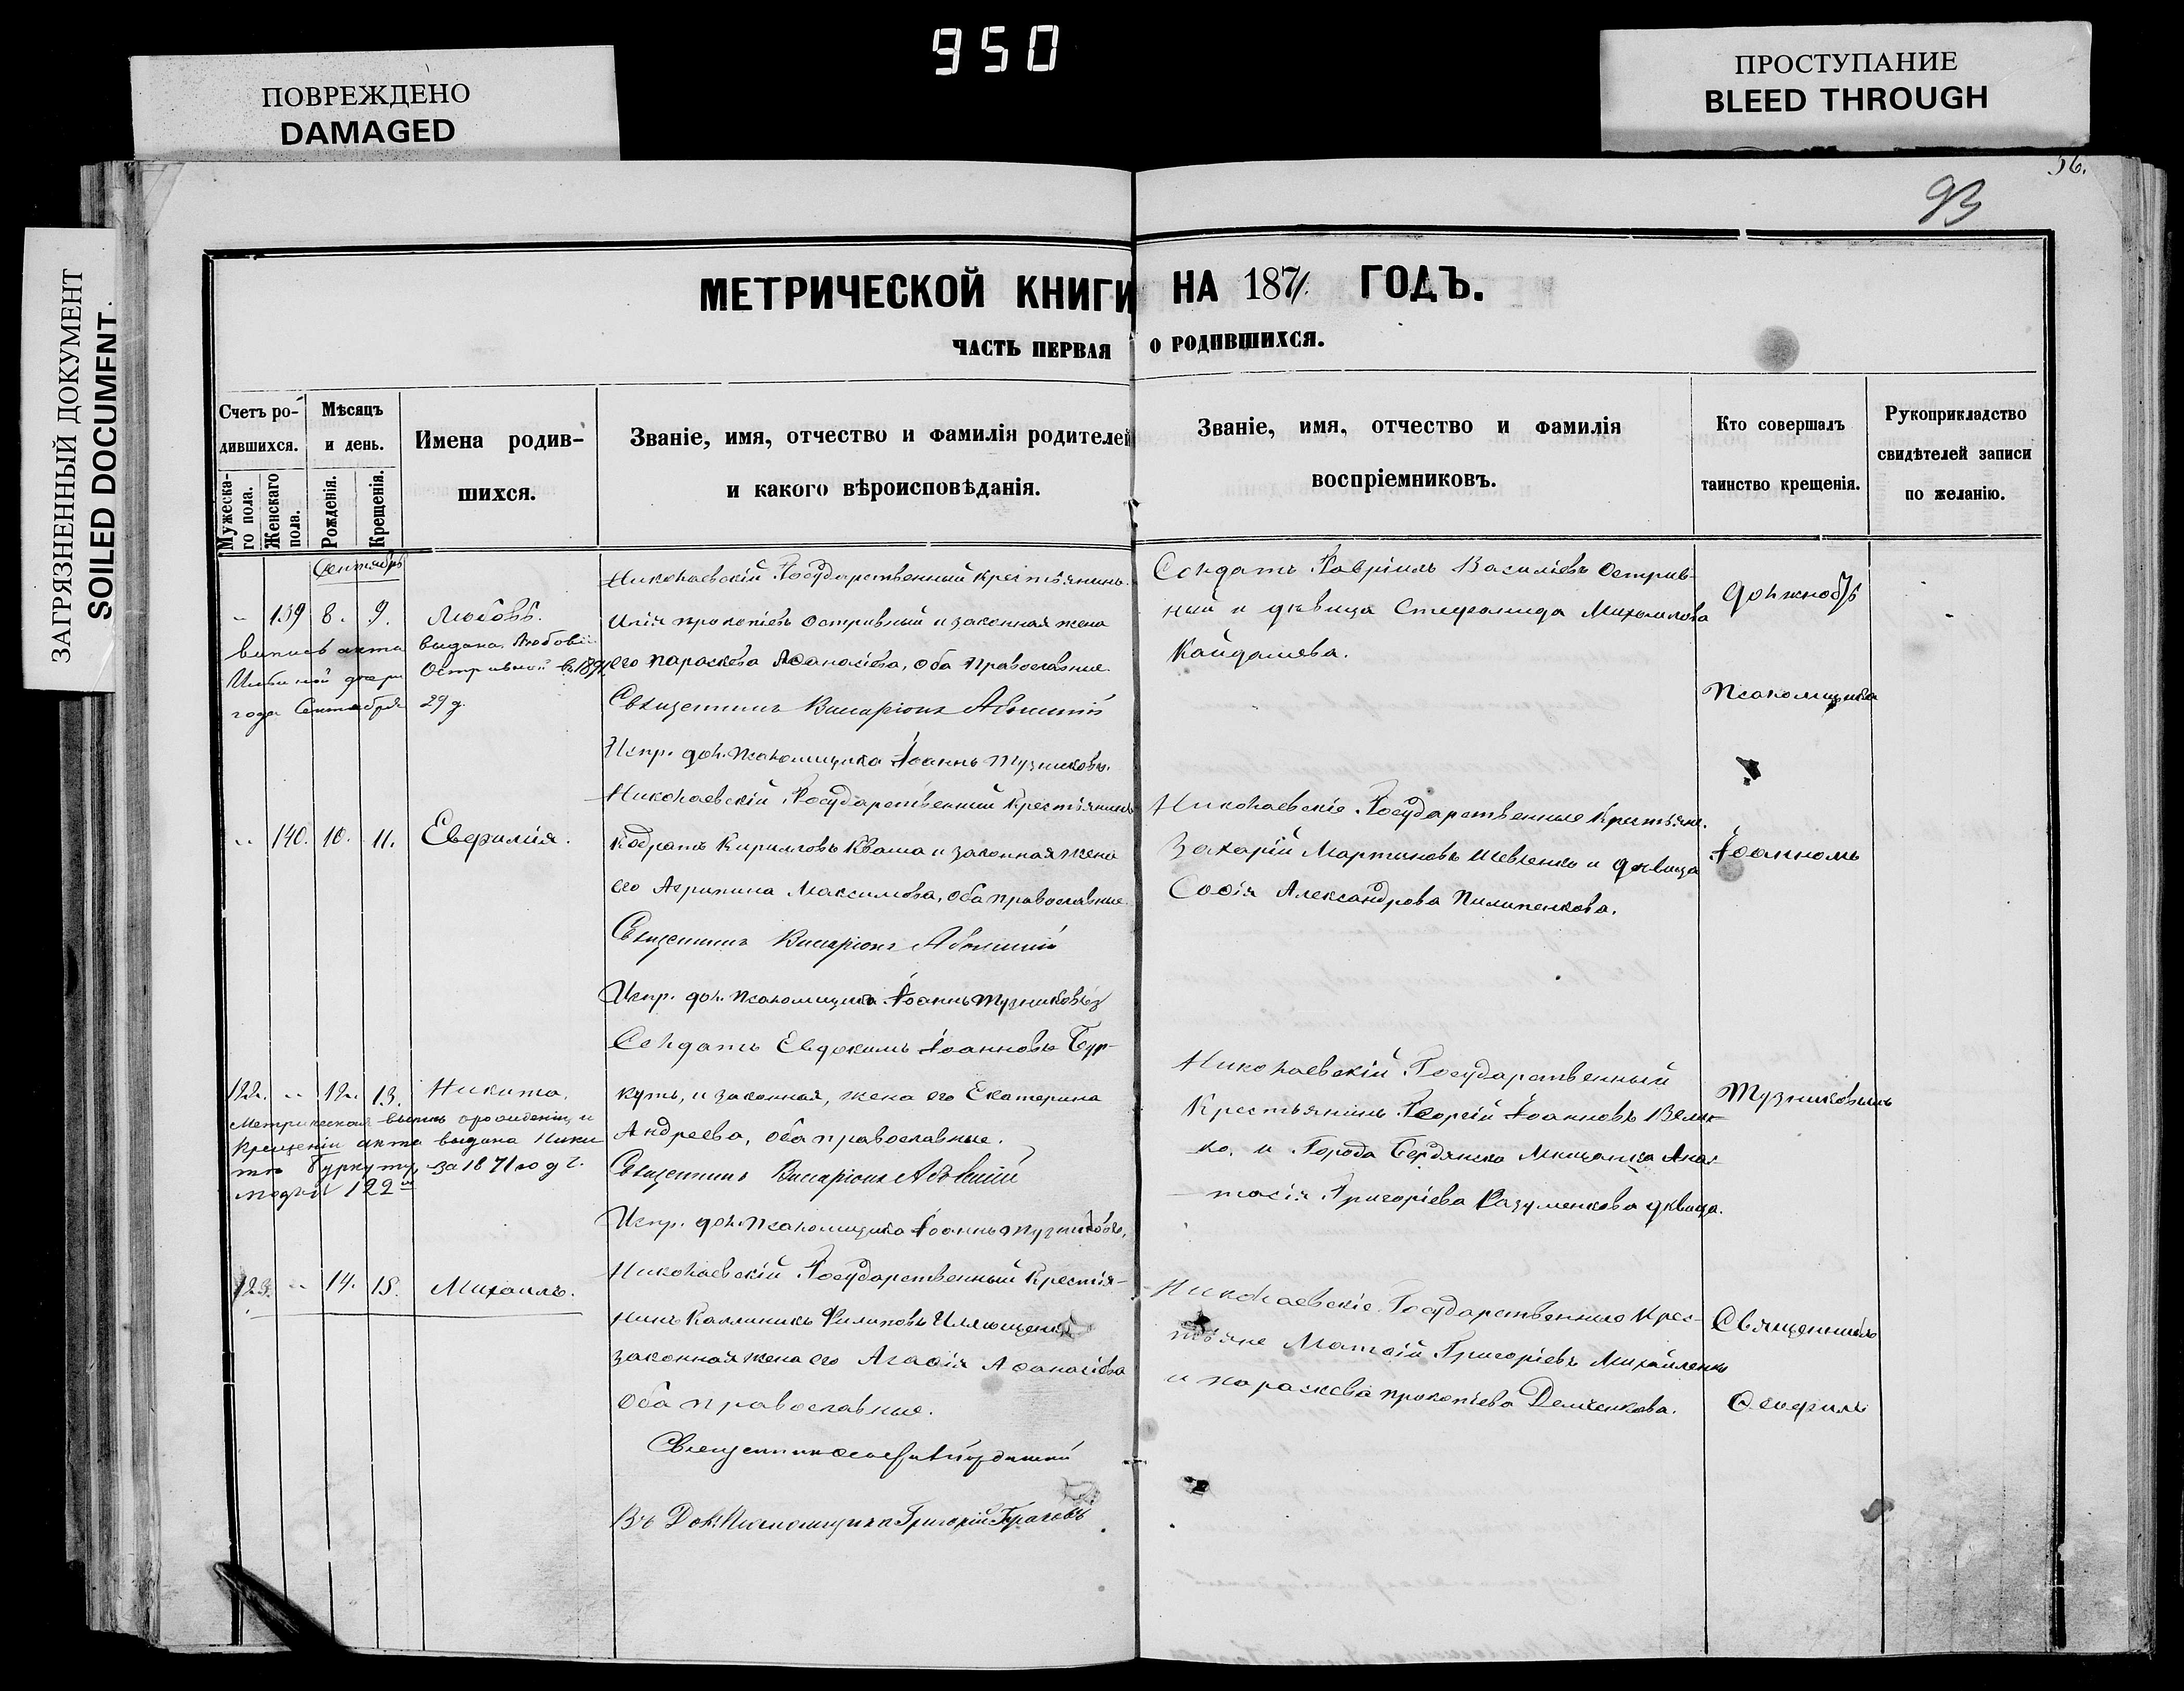 950
ПОВРЕЖДЕНО
DAMAGED
ПРОСТУПАНИЕ
BLEED THROUGH
ЗАГРЯЗНЕННЫЙ ДОКУМЕНТ
SOILED DOCUMENT
56.
93
МЕТРИЧЕСКОЙ КНИГИ НА 1871 ГОДЪ.
ЧАСТЬ ПЕРВАЯ О РОДИВШИХСЯ.
Счетъ ро-
дившихся.
Мужеска-
го пола.
Женскаго
пола.
Мѣсяцъ
и день.
Рожденія.
Крещенія.
Имена родив-
шихся.
Званіе, имя, отчество и фамилія родителей
и какого вѣроисповѣданія.
Званіе, имя, отчество и фамилія
воспріемниковъ.
Кто совершалъ
таинство крещенія.
Рукоприкладство
свидѣтелей записи
по желанію.
Сентябрь
139 8. 9. Любовь.
выпись акта выдана Любови
Островной в 1894
года Сентября 29 д.
Николаевскій Государственный крестьянинъ
Илія Прокопіевъ Остривный и законная жена
его Параскева Аѳанасіева, оба православные.
Священникъ
Испр. дол. Псаломщика Іоаннъ Тузниковъ.
Солдатъ Гавріилъ Василіевъ Острив-
ный и дѣвица Стефанида Михаилова
Кайдашева.
Псаломщика
140. 10. 11. Евфалія.
Николаевскій Государственный Крестьянинъ
Кодратъ Кириловъ Кваша и законная жена
его Агрипина Максимова, оба православные
Священникъ
Испр. дол. Псаломщика Іоаннъ Тузниковъ
Николаевскіе Государственные Крестьяне.
Захарій Мартиновъ Шевченко и дѣвица
Софія Александрова Пилипенкова.
Іоанномъ
122. 12. 13. Никита.
Метрическая выпись о рожденіи и
крещеніи акта выдана Ники-
тѣ Буркуту за 1871 год
122
Солдатъ Евдокимъ Іоанновъ Бур-
кутъ, и законная, жена его Екатерина
Андреева, оба православные.
Священникъ
Испр. дол. Псаломщика Іоаннъ Тузниковъ,
Николаевскій Государственный
Крестьянинъ Георгій Іоанновъ Велич-
ко, и Города Бердянска Мѣщанка Анас-
тасія Григоріева Разуменкова дѣвица.
Тузниковымъ
123. 14. 15. Михаилъ.
Николаевскій Государственный Крестья-
нинъ Каллиникъ Филиповъ
законная жена его Агафія Аѳанасіева
оба православные.
Священникъ
Въ Дол. Псаломщика Григорій
Николаевскіе Государственные Крес-
тьяне Матѳій Григоріевъ Михайленко
и Параскева Прокопіева Демченкова.
Священникъ